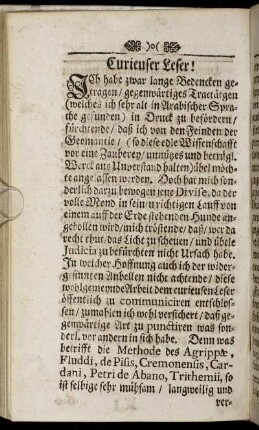 )o(
Curieuser Leser!
ICh habe zwar lange Bedencken ge-
tragen/ gegenwärtiges Tractätgen
(welches ich sehr alt in Arabischer Spra-
che gefunden) in Druck zu befördern/
fürchtende/ daß ich von den Feinden der
Geomantie/ (so diese edle Wissenschafft
vor eine Zauberey/ unnützes und betrügl.
Werck aus Unverstand halten) übel möch-
te angelassen werden. Doch hat mich son-
derlich darzu bewogen jene Divise, da der
volle Mond in seinem richtigen Lauff von
einem auff der Erde stehenden Hunde an-
gebollen wird/ mich tröstende/ daß/ wer da
recht thut/ das Licht zu scheuen/ und übele
Judicia zu befürchten nicht Ursach habe.
In welcher Hoffnung auch ich der wider-
gesinnten Anbellen nicht achtende/ diese
wohlgemeynde Arbeit dem curieusen Leser
öffentlich zu communiciren entschlos-
sen/ zumahlen ich wohl versichert/ daß ge-
genwärtige Art zu punctiren was son-
derl. vor andern in sich habe. Denn was
betrifft die Methode des Agrippæ,
Fluddi, de Pisis, Cremonensis, Car-
dani, Petri de Abano, Trithemii, so
ist selbige sehr mühsam/ langweilig und
ver-